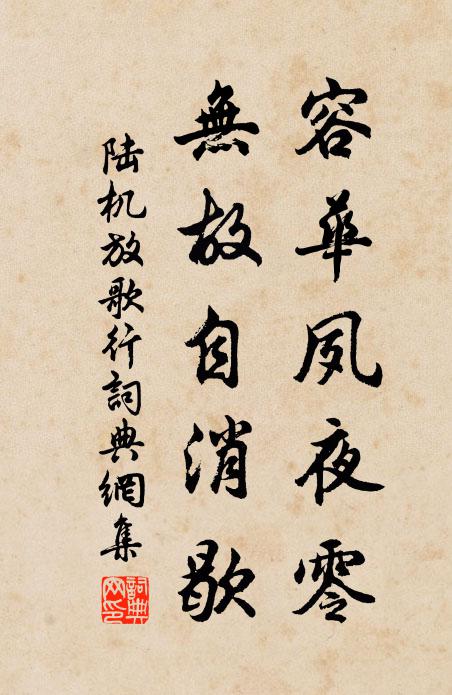 容華夙夜零
無故自消歇
陆机放歌行詞典網集
詞典網印